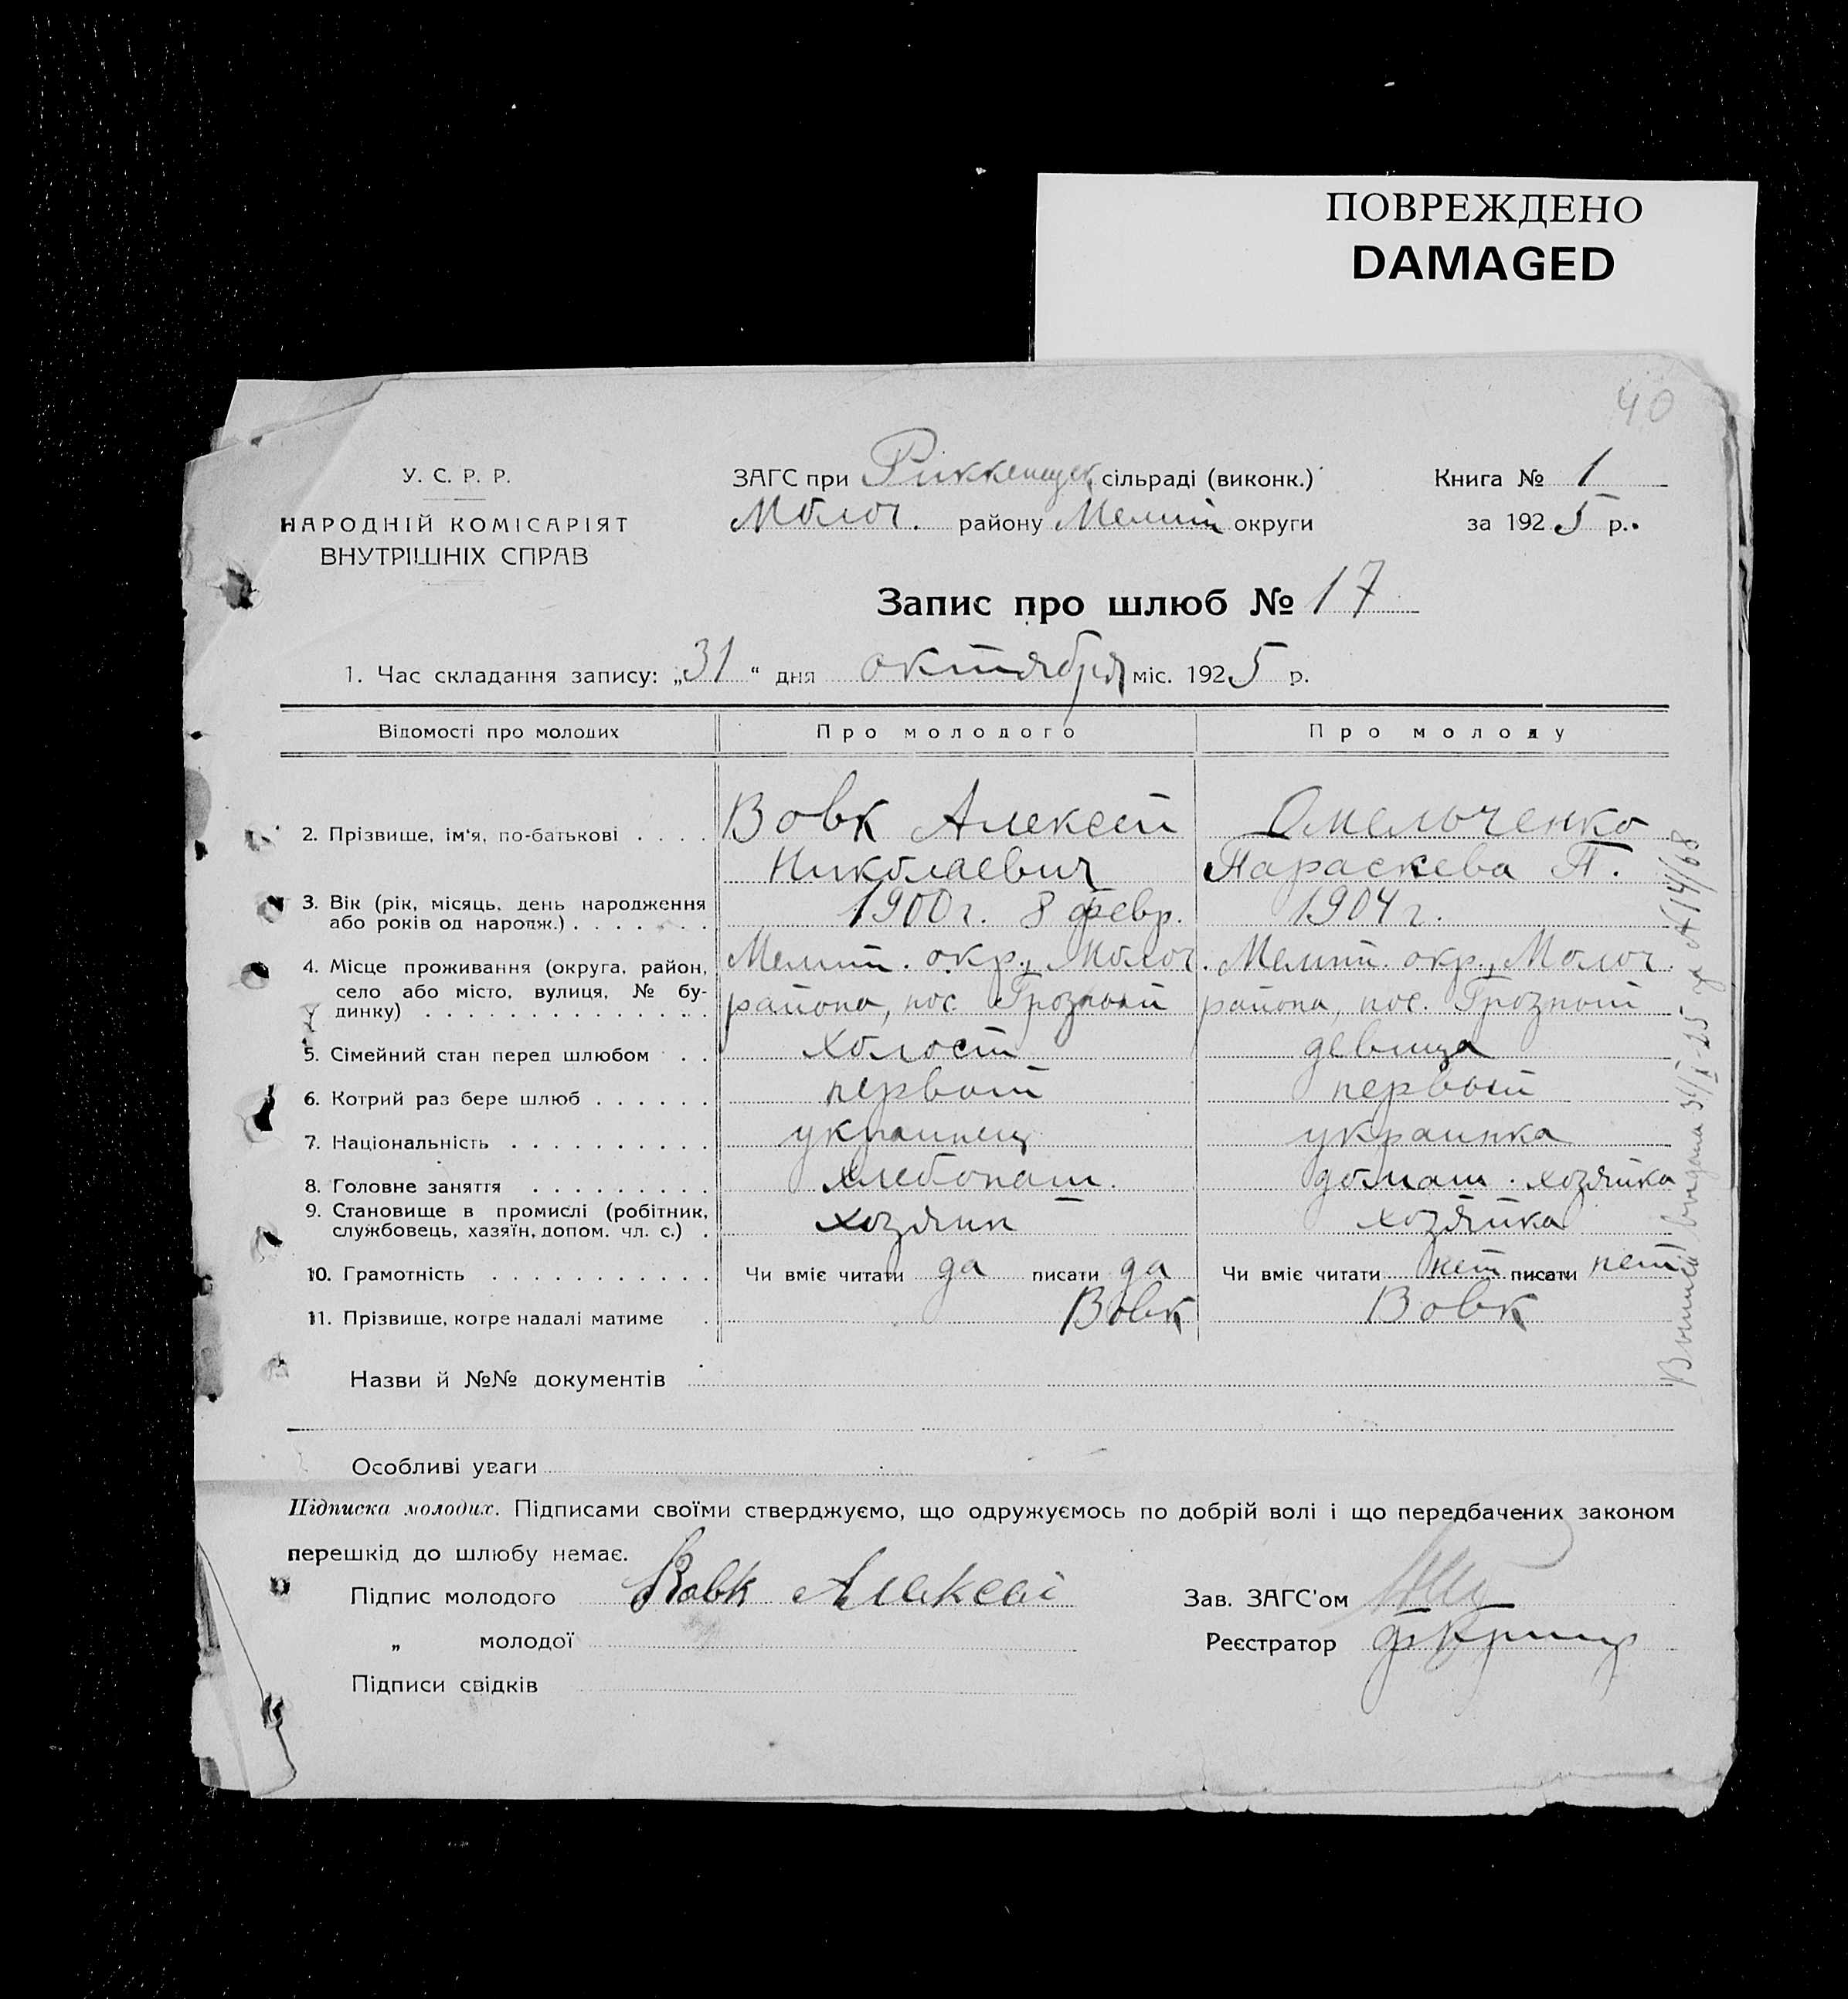 ПОВРЕЖДЕНО
DAMAGED
40
У. С. Р. Р.
НАРОДНІЙ КОМІСАРІЯТ
ВНУТРІШНІХ СПРАВ
ЗАГС при сільраді (виконк.)
Молоч. району Мелит округи
Книга № 1
за 1925 р.
Запис про шлюб № 17
1. Час складання запису: „31“ дня октября міс. 1925 р.
Відомості про молодих Про молодого Про молоду
2. Прізвище, ім'я, по-батькові . . . . Вовк Алексей Омельченко
Николаевич Параскева П.
3. Вік (рік, місяць, день народження 1900 г. 8 февр. 1904 г.
або років од народж.) . . . . . . .
4. Місце проживання (округа, район, Мелит. окр., Молоч. Мелит. окр., Молоч.
село або місто, вулиця, № бу- района, пос. Грозный района, пос. Грозный
динку) . . . . . . . . . . . . . .
5. Сімейний стан перед шлюбом . . холост девица
6. Котрий раз бере шлюб . . . . . . первый первый
7. Національність . . . . . . . . . . украинец украинка
8. Головне заняття . . . . . . . . . хлебопаш. домаш. хозяйка
9. Становище в промислі (робітник, хозяин хозяйка
службовець, хазяїн, допом. чл. с.) .
10. Грамотність . . . . . . . . . . . Чи вміє читати да писати да Чи вміє читати нет писати нет
11. Прізвище, котре надалі матиме . Вовк Вовк
Назви й №№ документів
Особливі уваги
Підписка молодих. Підписами своїми стверджуємо, що одружуємось по добрій волі і що передбачених законом
перешкід до шлюбу немає.
Підпис молодого Вовк Алексей
„ молодої
Підписи свідків
Зав. ЗАГС'ом
Реєстратор